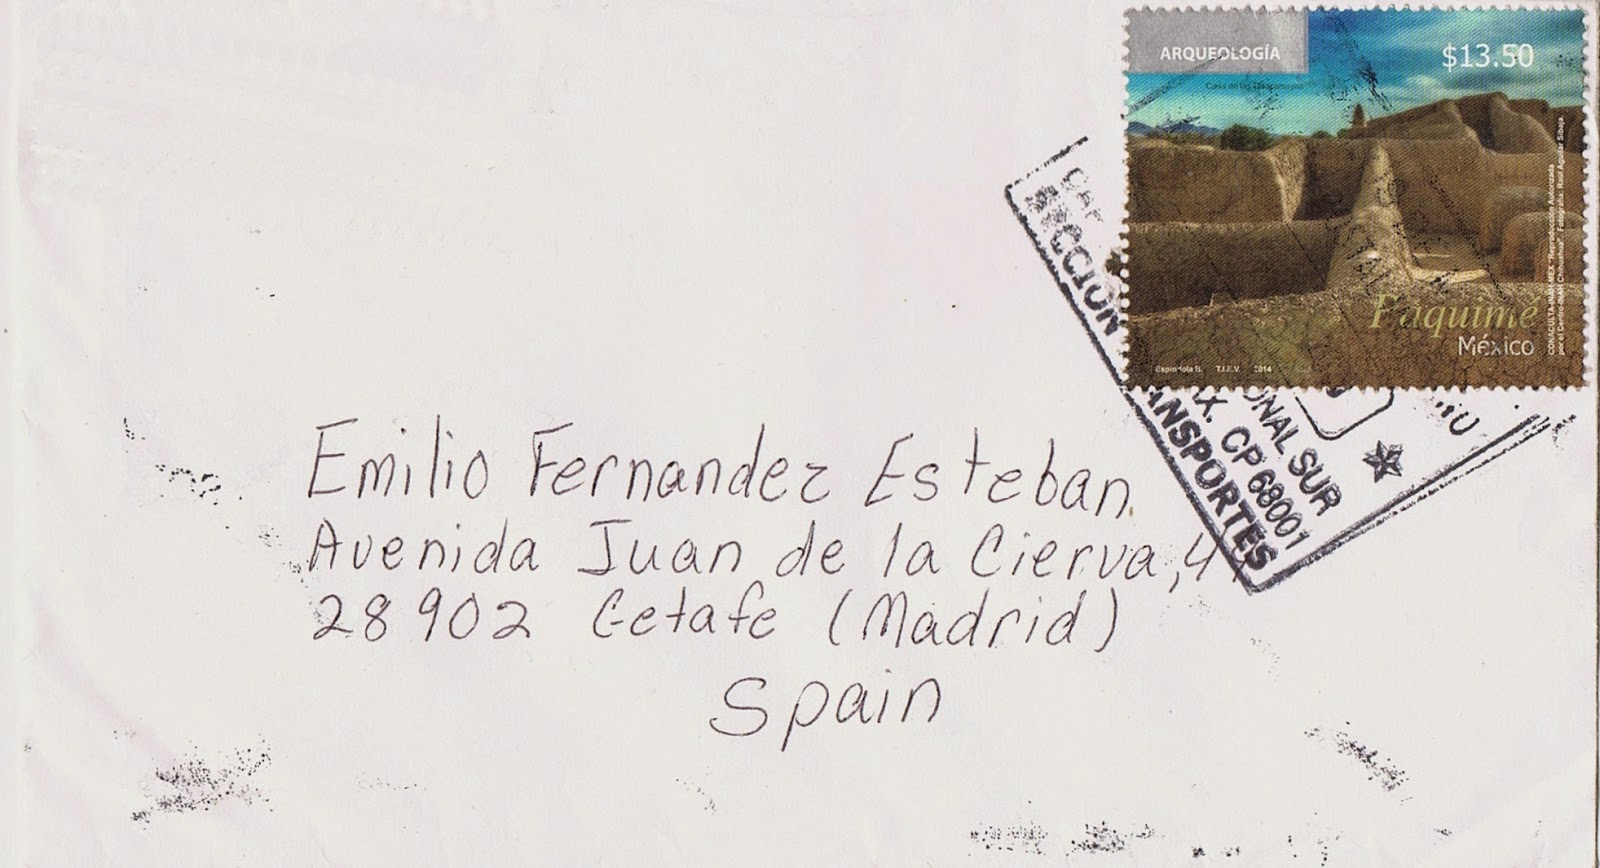 ARQUEOLOGÍA
$13.50
Casa de las Guacamayas
CONACULTA-INAH-MEX "Reproducción Autorizada
por el Centro INAH Chihuahua". Fotografía: Raúl Aguilar Sibaja
Paquimé
México
T.I.E.V. 2014
SECCIÓN
ONAL SUR
AX. CP 68001
ANSPORTES
Emilio Fernandez Esteban
Avenida Juan de la Cierva,
28902 Getafe (Madrid)
Spain